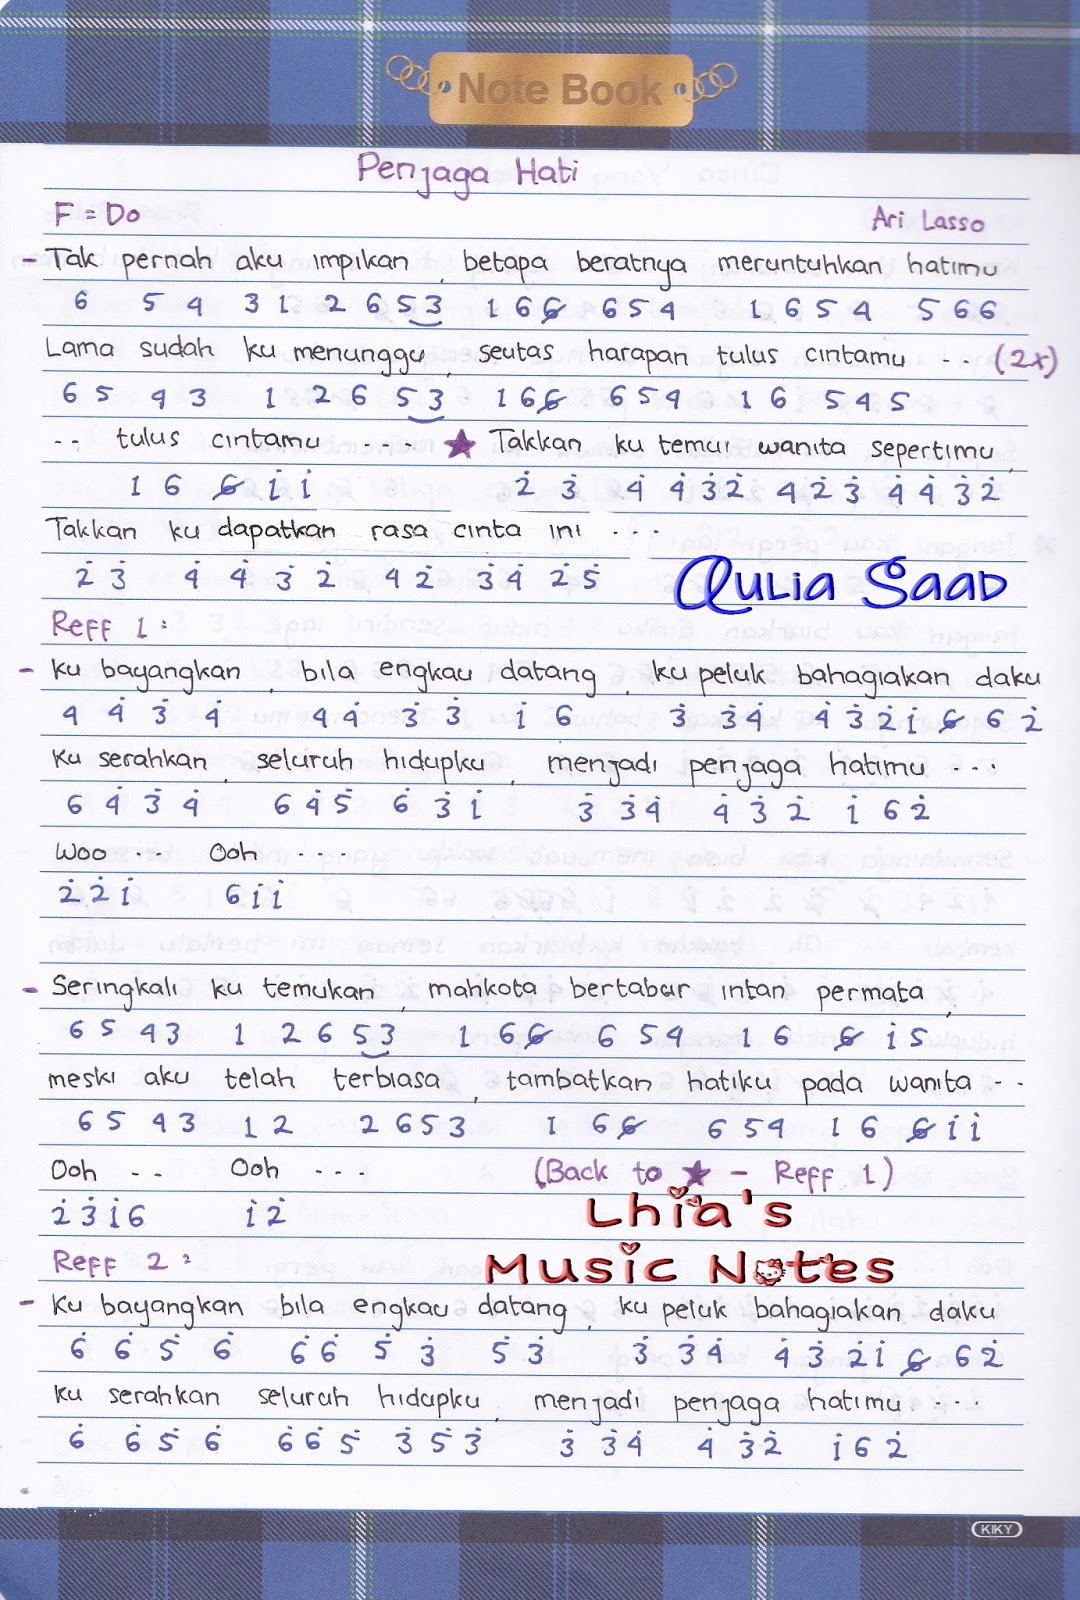 Note Book
Penjaga Hati
F = Do
Ari Lasso
- Tak pernah aku impikan, betapa beratnya meruntuhkan hatimu
6 5 4 3 1 2 6 5 3 1 6 6̸ 6 5 4 1 6 5 4 5 6 6
Lama sudah ku menunggu, seutas harapan tulus cintamu -- (2x)
6 5 4 3 1 2 6 5 3 1 6 6̸ 6 5 4 1 6 5 4 5
-- tulus cintamu ---- ★ Takkan ku temui wanita sepertimu,
1 6 6̸ 1̇ 1̇ 2̇ 3̇ 4̇ 4̇ 3̇ 2̇ 4̇ 2̇ 3̇ 4̇ 4̇ 3̇ 2̇
Takkan ku dapatkan rasa cinta ini ---
2̇ 3̇ 4̇ 4̇ 3̇ 2̇ 4̇ 2̇ 3̇ 4̇ 2̇ 5̇
Aulia Saad
Reff 1 :
- Ku bayangkan, bila engkau datang, ku peluk bahagiakan daku
4 4̇ 3̇ 4̇ 4̇ 4̇ 3̇ 3̇ 1̇ 6 3̇ 3̇ 4̇ 4̇ 3̇ 2̇ 1̇ 6̸ 6 2̇
Ku serahkan, seluruh hidupku, menjadi penjaga hatimu ---
6 4̇ 3̇ 4̇ 6 4̇ 5̇ 6̇ 3̇ 1̇ 3̇ 3̇ 4̇ 4̇ 3̇ 2̇ 1̇ 6 2̇
Woo -- Ooh ---
2̇ 2̇ 1̇ 6 1̇ 1̇
- Seringkali ku temukan, mahkota bertabur intan permata,
6 5 4 3 1 2 6 5 3 1 6 6̸ 6 5 4 1 6 6̸ 1̇ 5
meski aku telah terbiasa, tambatkan hatiku pada wanita --
6 5 4 3 1 2 2 6 5 3 1 6 6̸ 6 5 4 1 6 6̸ 1̇ 1̇
Ooh -- Ooh --- (Back to ★ - Reff 1)
2̇ 3̇ 1̇ 6 1̇ 2̇
Lhia's
Music Notes
Reff 2 :
- Ku bayangkan bila engkau datang, ku peluk bahagiakan daku
6̇ 6̇ 5̇ 6̇ 6̇ 6̇ 5̇ 3̇ 5̇ 3̇ 3̇ 3̇ 4̇ 4̇ 3̇ 2̇ 1̇ 6̸ 6 2̇
Ku serahkan seluruh hidupku, menjadi penjaga hatimu ----
6̇ 6̇ 5̇ 6̇ 6̇ 6̇ 5̇ 3̇ 5̇ 3̇ 3̇ 3̇ 4̇ 4̇ 3̇ 2̇ 1̇ 6 2̇
KIKY